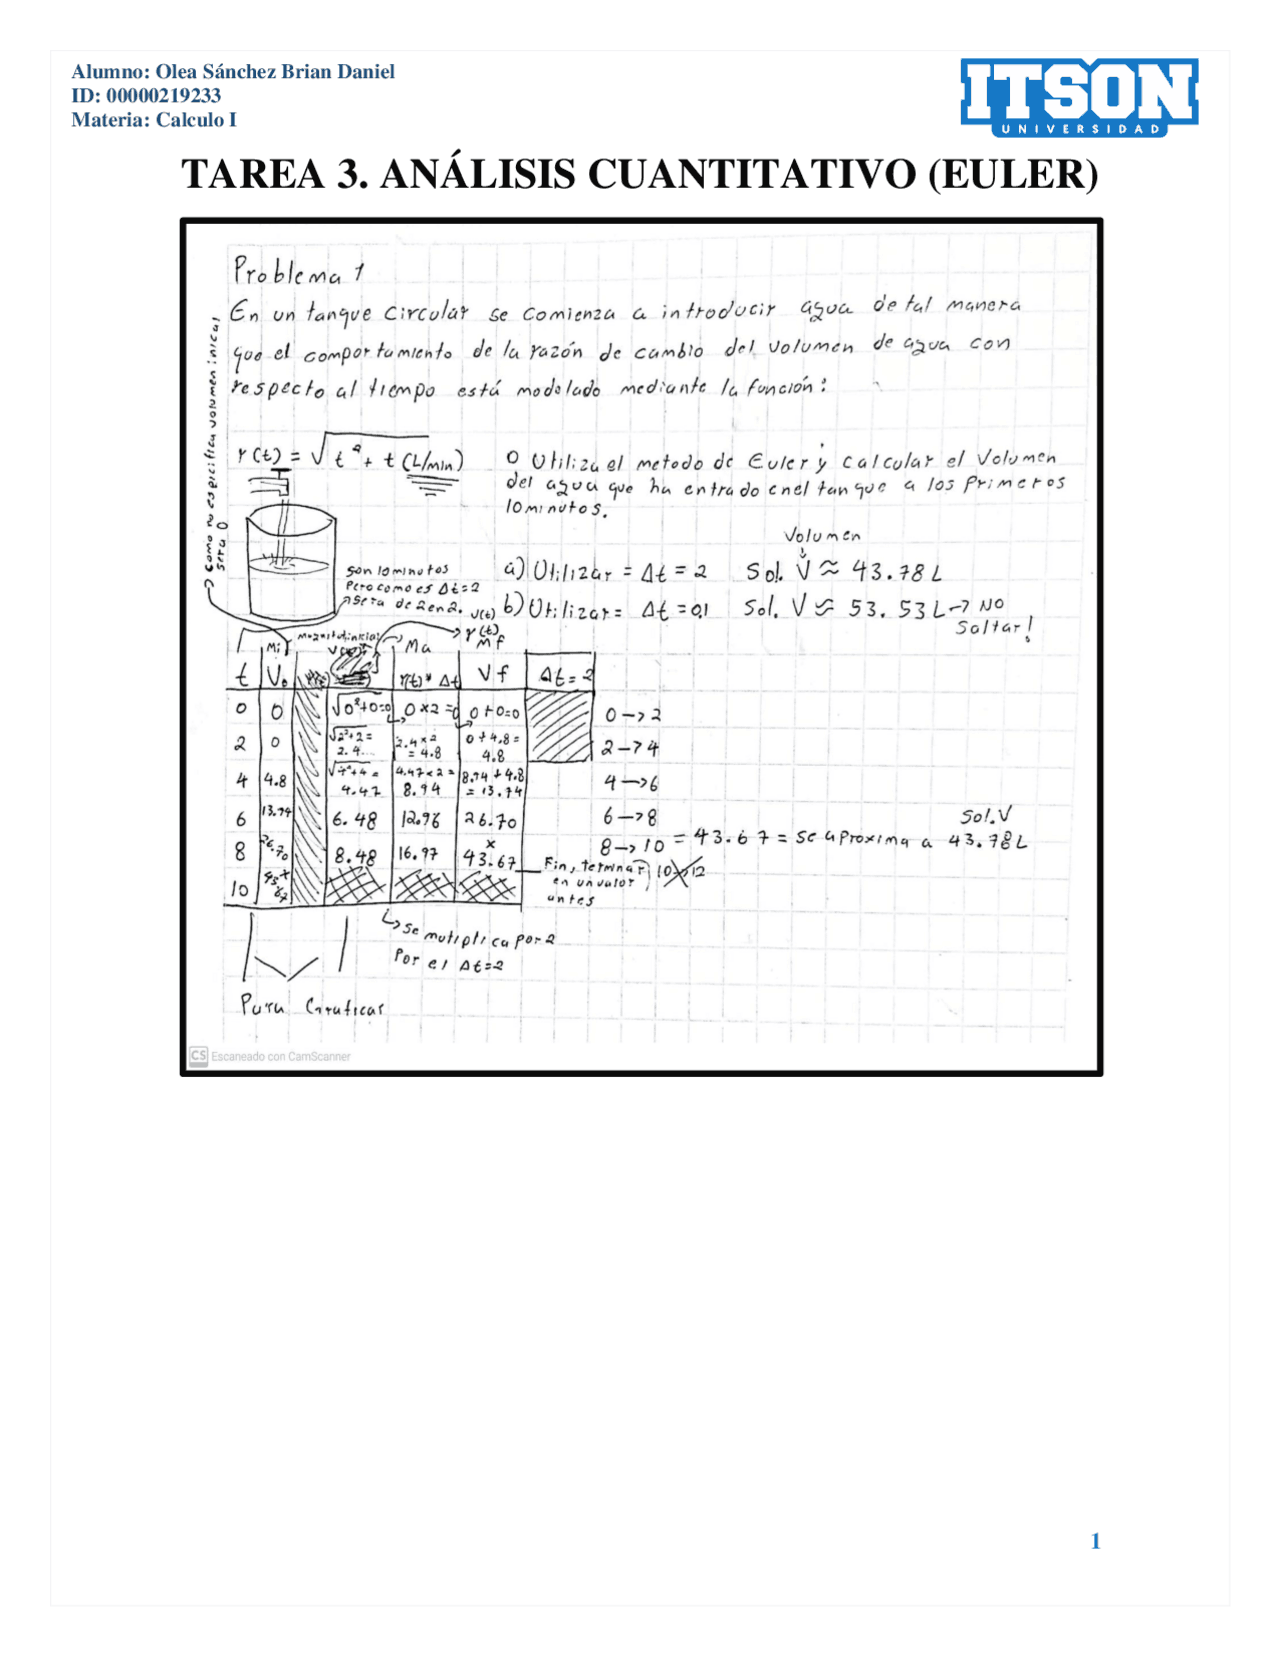 Alumno: Olea Sánchez Brian Daniel
ID: 00000219233
Materia: Calculo I
ITSON
UNIVERSIDAD
TAREA 3. ANÁLISIS CUANTITATIVO (EULER)
Problema 1
En un tanque circular se comienza a introducir agua de tal manera
que el comportamiento de la razón de cambio del volumen de agua con
respecto al tiempo está modelado mediante la función:
→ Como no especifica volumen inicial
sera 0
r(t) = √t²+t (L/min)
O Utiliza el metodo de Euler y calcular el Volumen
del agua que ha entrado en el tanque a los Primeros
10 minutos.
Volumen
a) Utilizar = Δt = 2 Sol. V ≈ 43.78 L
b) Utilizar = Δt = 0.1 Sol. V ≈ 53.53 L → NO
Saltar!
son 10 minutos
Pero como es Δt=2
sera de 2 en 2.
V(t)
r(t)
Mi Ma Mf
t V₀ r(t)* Δt Vf Δt = 2
0 0 √0²+0=0 0×2=0 0+0=0 0→2
2 0 √2²+2= 2.4... 2.4×2 = 4.8 0+4.8= 4.8 2→4
4 4.8 √4²+4 = 4.47 4.47×2= 8.94 8.94+4.8 = 13.74 4→6
6 13.74 6.48 12.96 26.70 6→8
8 26.70 8.48 16.97 43.67 8→10 = 43.67 = se aproxima a 43.78L
Sol.V
10 43.67
Fin, terminar
en un valor
antes
10→12
↳ se mutiplica por 2
Por el Δt=2
Para Graficar
CS Escaneado con CamScanner
1